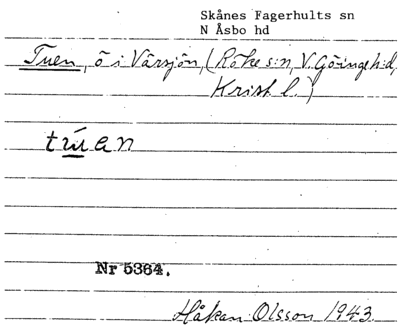 Skånes Fagerhults sn
N Åsbo hd
Tuen, ö i Vårsjön, (Röke s:n, V. Göinge h:d,
Krist l.)
trúan
Nr 5364.
Håkan Olsson 1943.